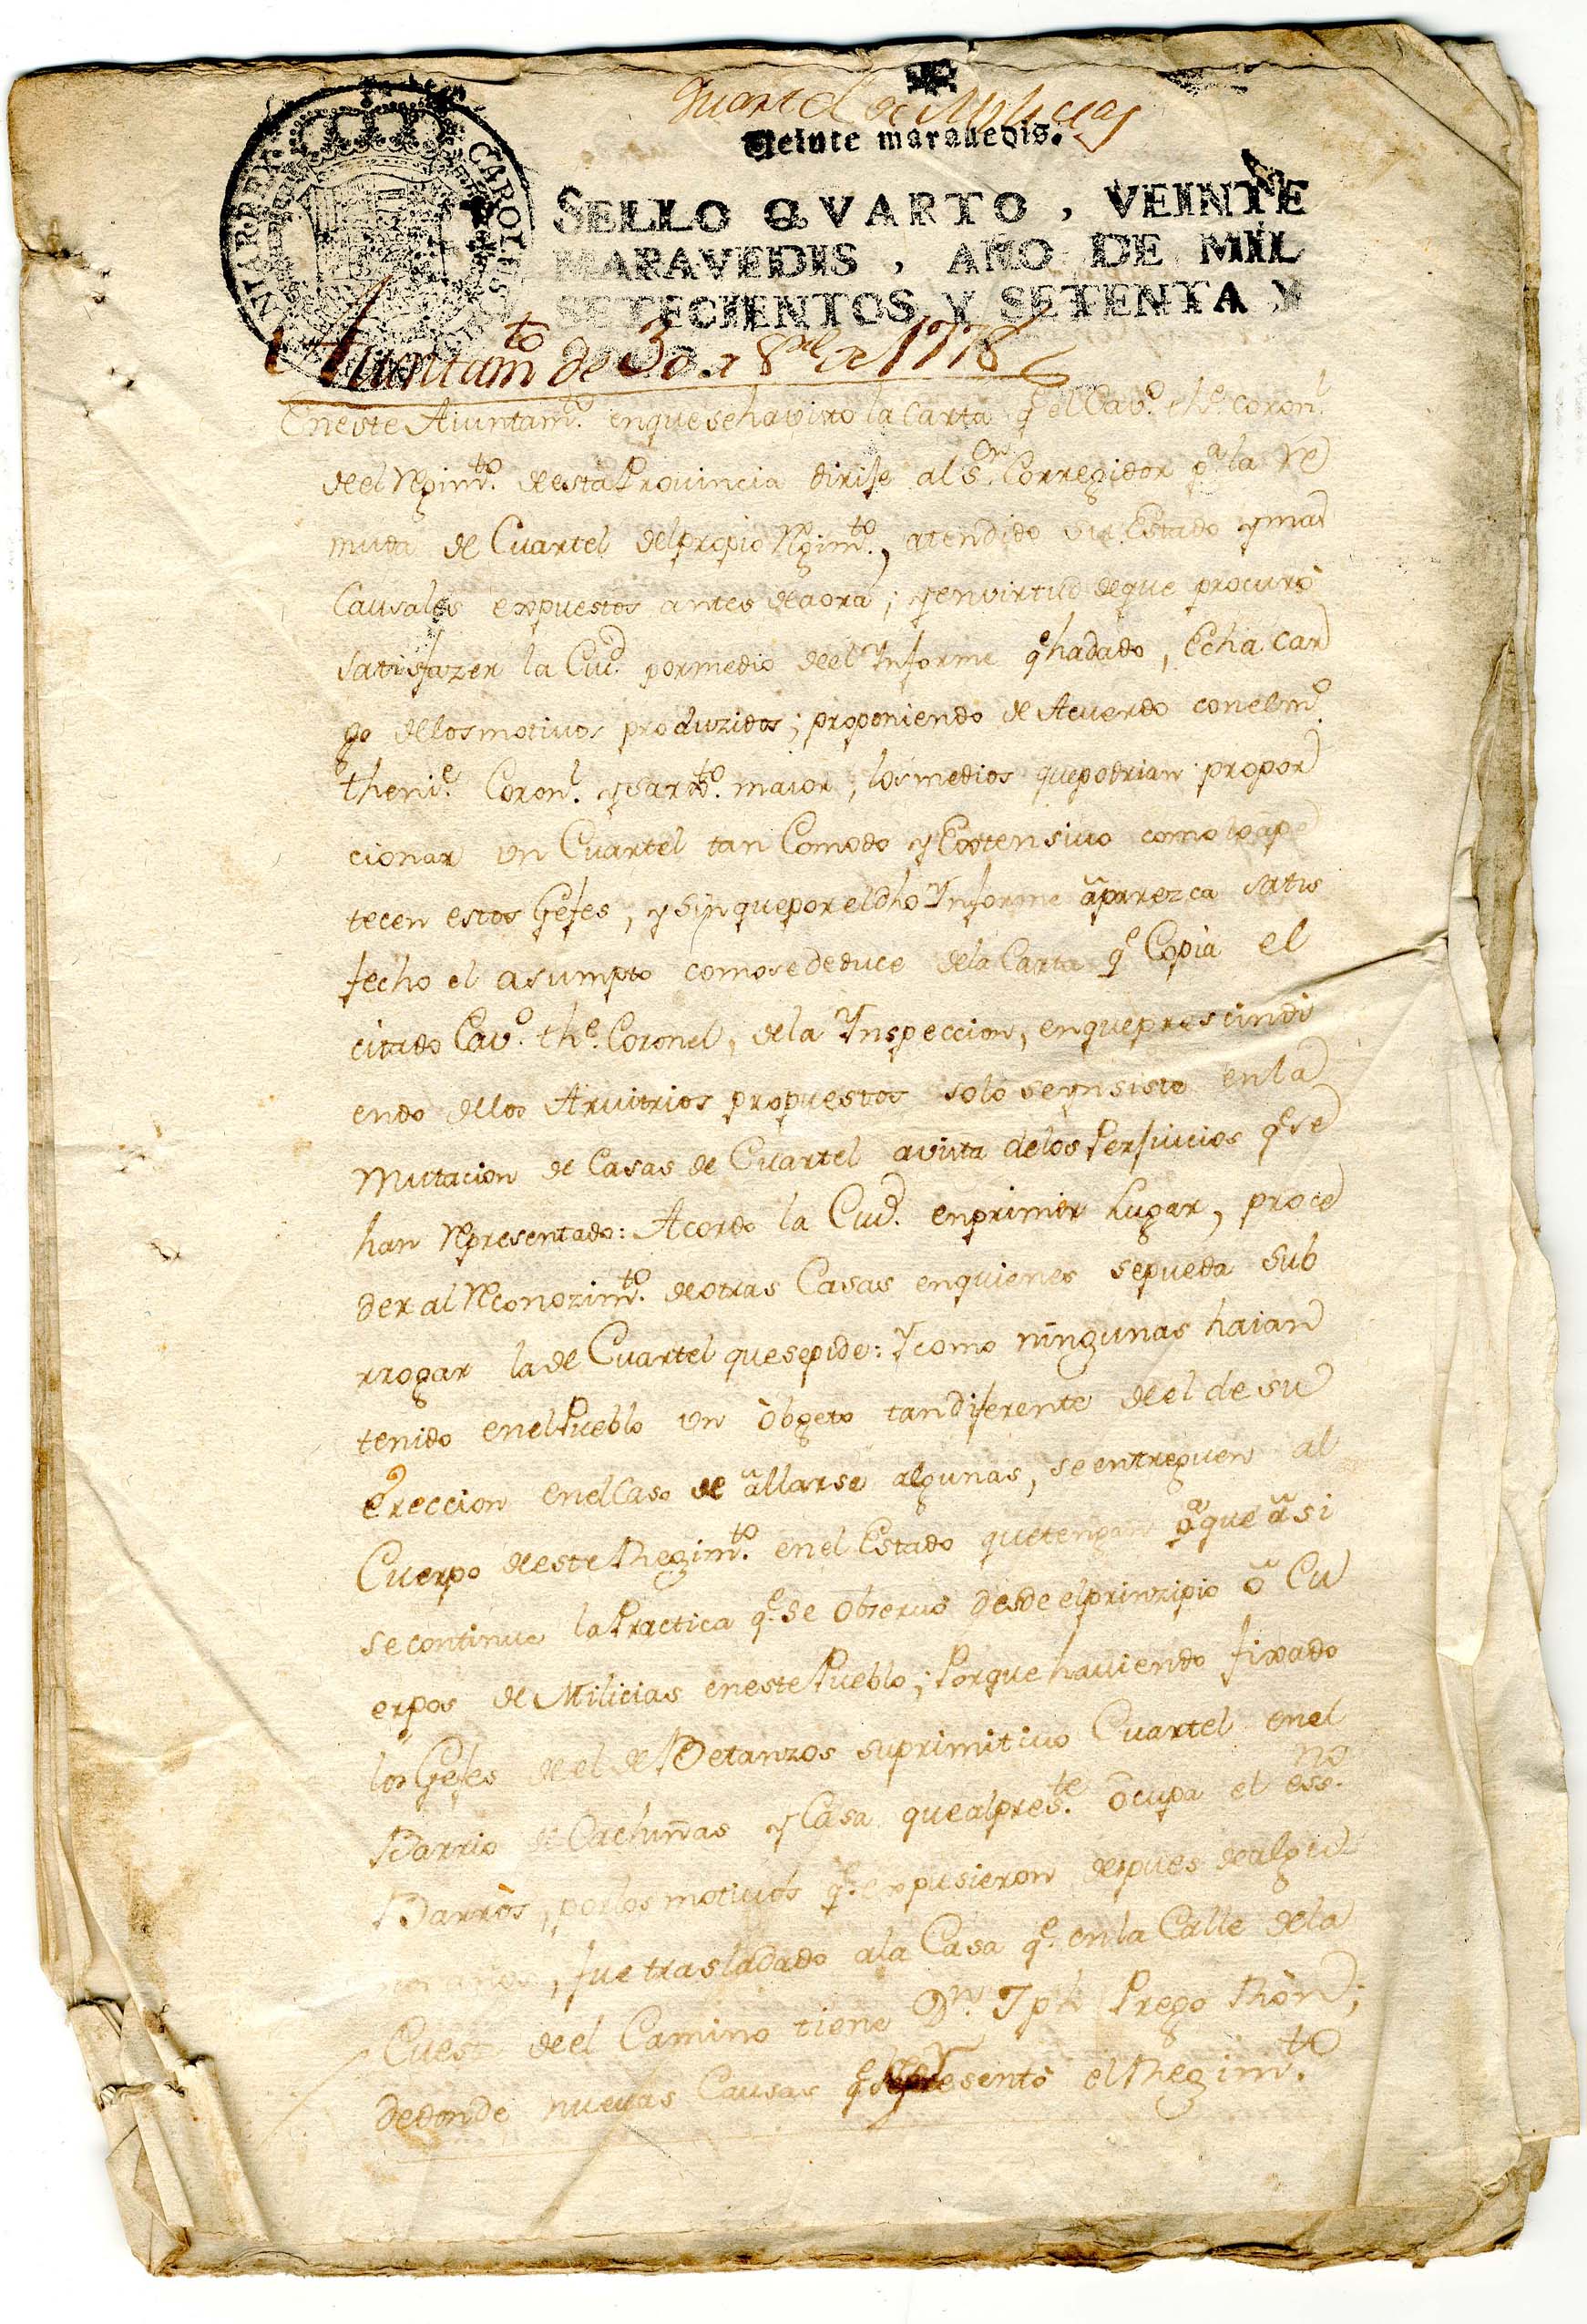 Quartel de Milicias
Veinte marauedis.
SELLO QVARTO, VEINTE
MARAVEDIS, AÑO DE MIL
SETECIENTOS Y SETENTA Y
CAROLUS
HISPANIAR REX
Aiuntamto de 30 de 8re de 1778
En este Aiuntamto. en que se ha visto la Carta qe el Cavo. the. Coronl.
de el Regimto. de esta Provincia dirije al Sor. Corregidor pa la Re
muda de Cuartel del propio Rgimto., atendido su Estado y mas
Causales expuestos antes de aora; y en virtud de que procuró
satisfazer la Ciud. por medio de el Informe qe ha dado, Echa car
go de los motivos produzidos; proponiendo de Acuerdo con el mo.
theniе. Coronl. y Sarxto. maior, los medios que podrian propor
cionar un Cuartel tan Comodo y Extensivo como lo ape
tecen estos Gefes, y sin que por el dho Informe aparezca satis
fecho el asumpto como se deduce de la Carta qe Copia el
citado Cavo. the. Coronel, de la Inspeccion, en que prescindi
endo de los Arvitrios propuestos solo se ynsiste en la
Mutacion de Casas de Cuartel a vista de los Perjuicios qe se
han Representado: Acordo la Ciud. en primer Lugar, proce
der al Reconozimto. de otras Casas en quienes se pueda sub
rrogar la de Cuartel que se pide: Y como ningunas haian
tenido en el Pueblo un obgeto tan diferente de el de su
Ereccion en el Caso de allarse algunas, se entreguen al
Cuerpo de este Rhegimto. en el Estado que tengan pa que asi
se continue la Practica qe. se observó desde el prinzipio a Cu
erpos de Milicias en este Pueblo; Porque haviendo fixado
los Gefes de el de Betanzos su primitivo Cuartel en el
Barrio de Cachiñas y Casa que al preste. ocupa el essno.
Barròs, por los motivos qe. expusieron despues de algu
nos años, fue trasladado a la Casa qe. en la Calle de la
Cuesta de el Camino tiene Dn. Jph Prego Rhòn;
de donde nuevas Causas qe representó el Rhegimto.